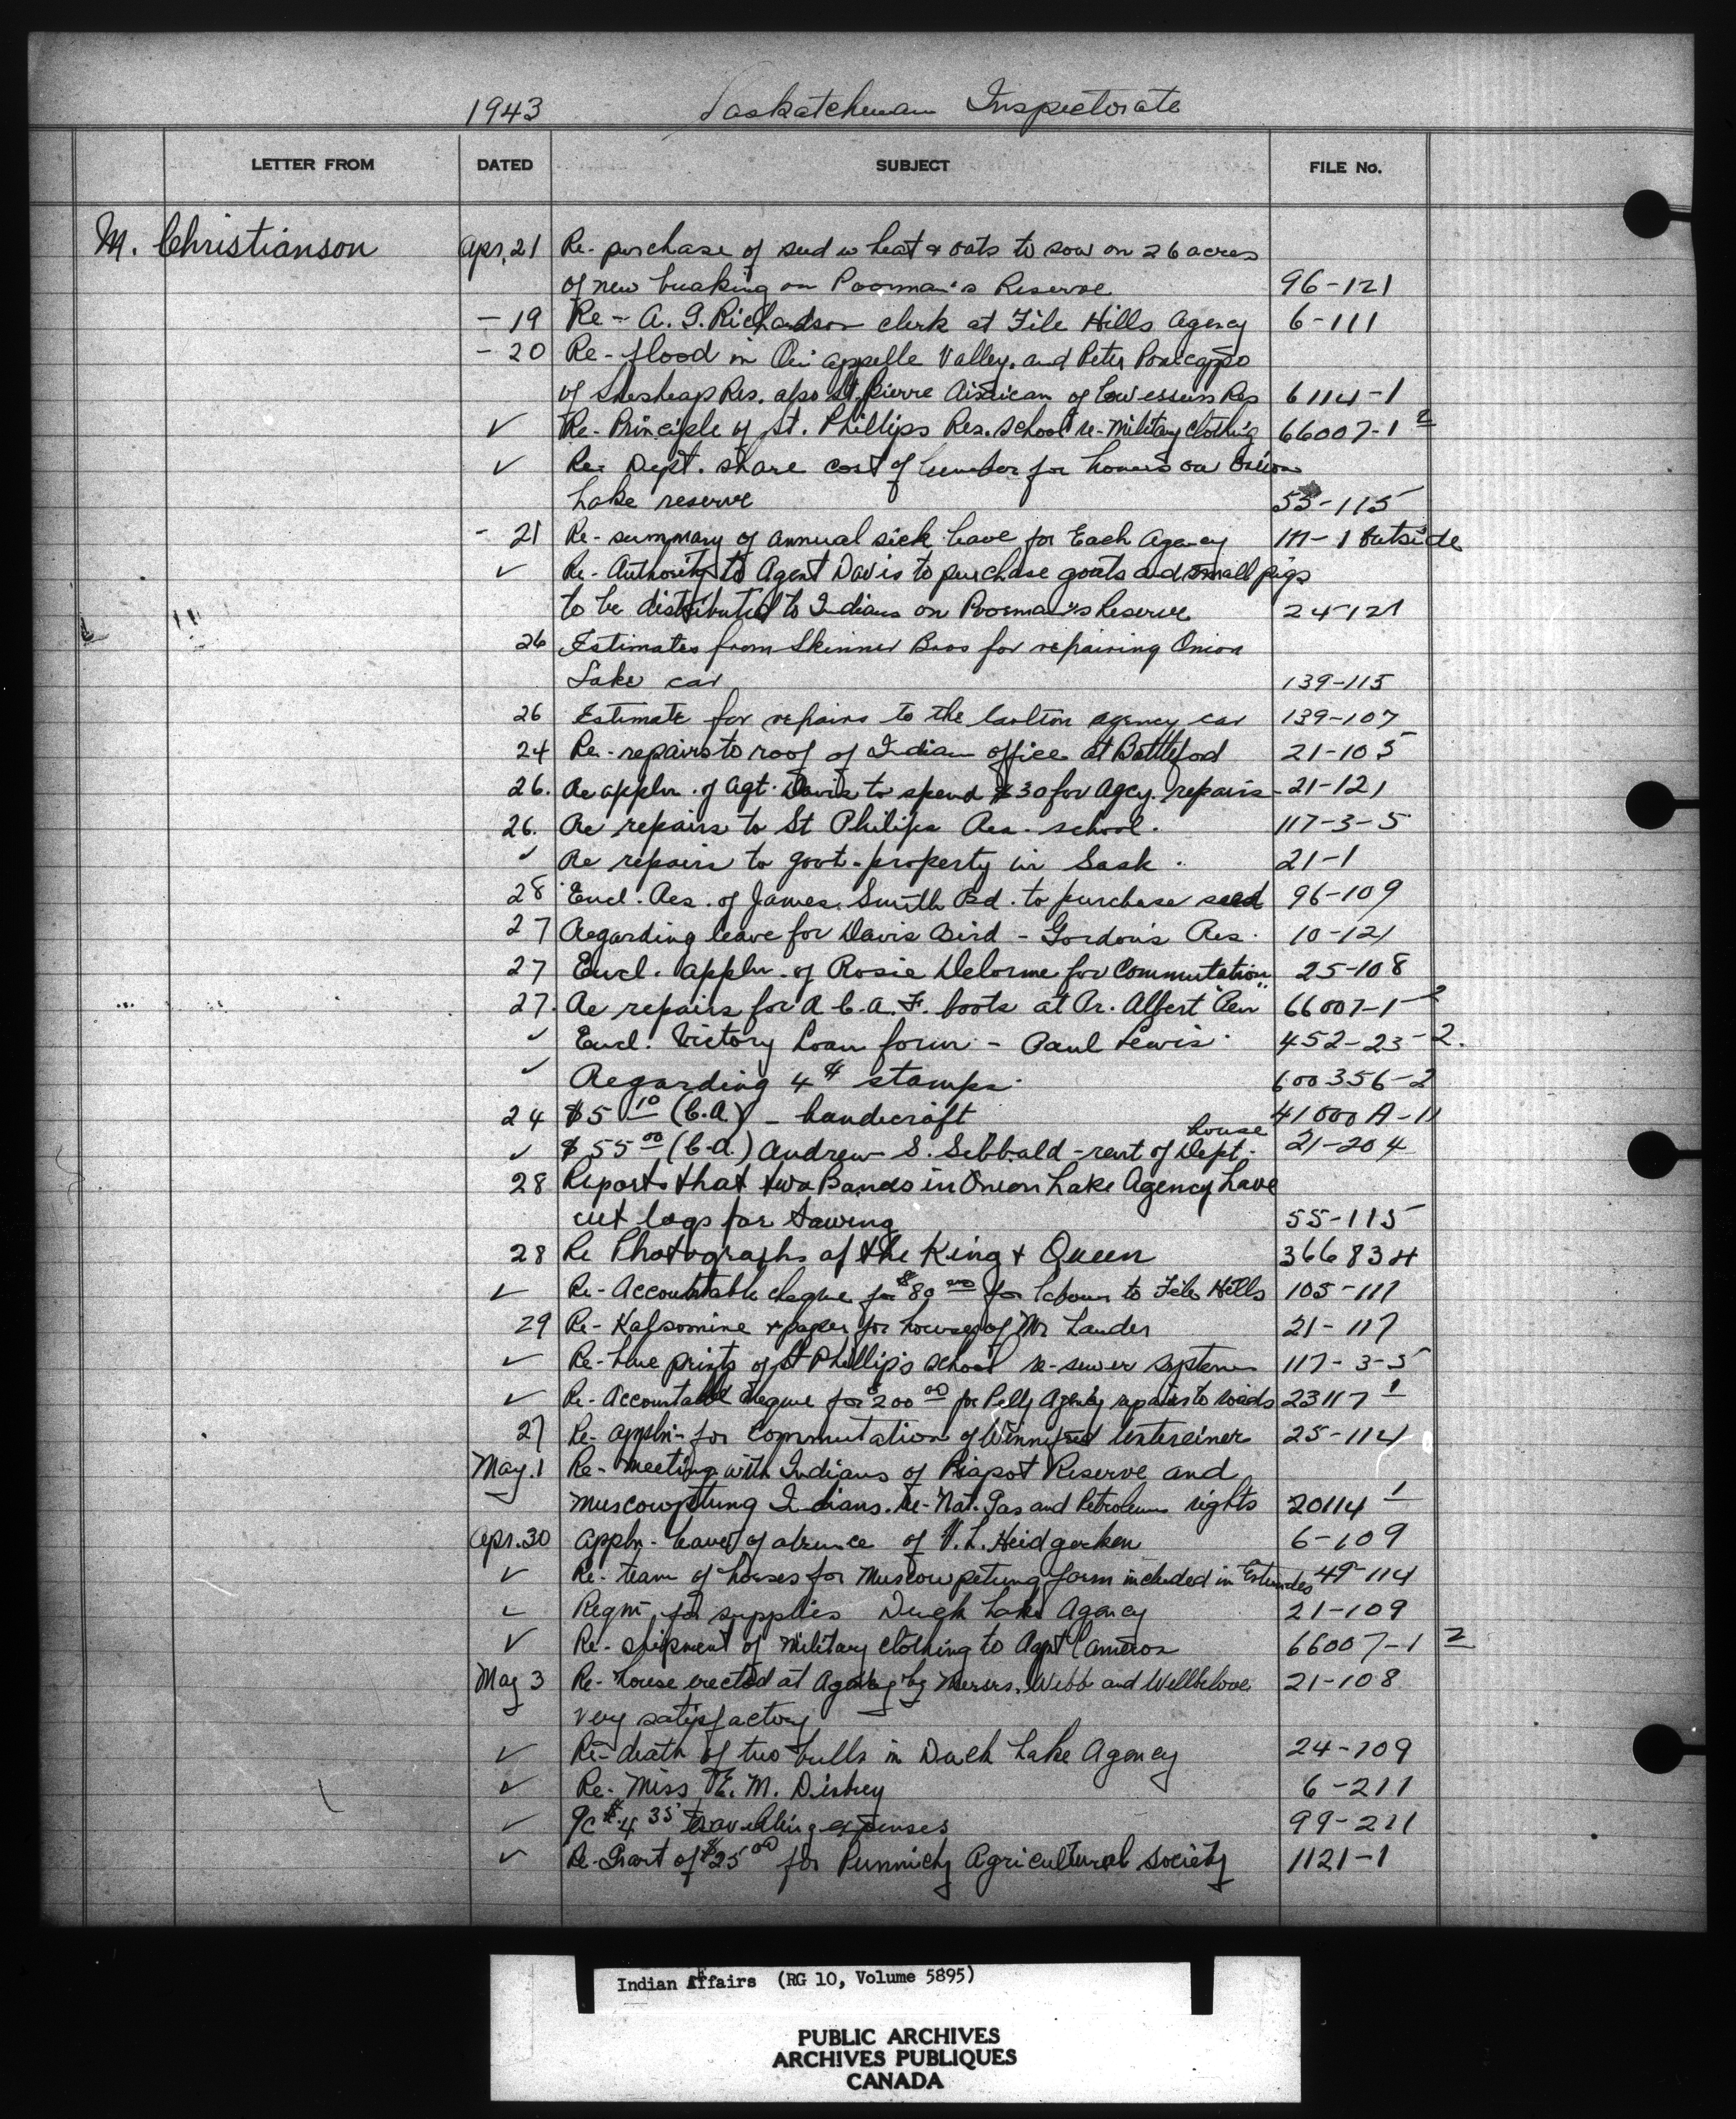 1943 Saskatchewan Inspectorate
LETTER FROM DATED SUBJECT FILE No.
M. Christianson Apr. 21 Re- purchase of seed wheat & oats to sow on 26 acres
of new breaking on Poorman's Reserve 96-121
- 19 Re- A. G. Richardson clerk at File Hills Agency 6-111
- 20 Re- flood in Qu'appelle Valley. and Peter
of Res. also St. Pierre of Res 6114-1
✓ Re- Principle of St. Phillips Res. School re- Military clothing 66007-1 2
✓ Re- Dept. share cost of lumber for homes on Onion
Lake reserve 55-115
- 21 Re- summary of annual sick leave for Each Agency 111-1 Outside
✓ Re- Authority to Agent Davis to purchase goats and small pigs
to be distributed to Indians on Poorman's Reserve 24-121
26 Estimates from Skinner Bros for repairing Onion
Lake car 139-115
26 Estimate for repairs to the Carlton agency car 139-107
24 Re- repairs to roof of Indian office at Battleford 21-105
26. Re appln. of Agt. Davis to spend $30 for Agcy. repairs 21-121
26. Re repairs to St Philips Res. school. 117-3-5
✓ Re repairs to govt. property in Sask. 21-1
28 Encl. Res. of James Smith Bd. to purchase seed 96-109
27 Regarding leave for Davis Bird - Gordon's Res. 10-121
27 Encl. appln. of Rosie Delorme for Commutation 25-108
27. Re repairs for R.C.A.F. boots at Pr. Albert "Pen" 66007-1-2
✓ Encl. Victory Loan form - Paul Lewis. 452-23-2.
✓ Regarding 4¢ stamps. 600356-2
24 $5 10 (C.A.) - handicraft 41000 A-11
✓ $55 00 (C.A.) Andrew S. Sibbald - rent of Dept. house 21-204
28 Reports that two Bands in Onion Lake Agency have
cut logs for Sawing 55-115
28 Re Photographs of the King & Queen 366834
✓ Re- Accountable cheque for $80 00 for labour to File Hills 105-111
29 Re- Kalsomine & paper for house of Mr Lander 21-117
✓ Re- blue prints of St Phillip's school re- sewer system 117-3-5
✓ Re- Accountable cheque for $200 00 for Pelly Agency repairs to roads 23117 1
27 Re- appln- for commutation of Winnifred 25-114
May. 1 Re- meeting with Indians of Piapot Reserve and
Muscowpetung Indians. re- Nat. Gas and Petroleum rights 20114 1
Apr. 30 appln- leave of absence of V. L. Heidgerken 6-109
✓ Re- team of horses for Muscowpetung farm included in Estimates 49-114
✓ Reqm- for supplies Duck Lake Agency 21-109
✓ Re- shipment of Military clothing to Agent Cameron 66007-1 2
May 3 Re- house erected at Agency by Messrs. Webb and Wellbelove
very satisfactory 21-108
✓ Re- death of two bulls in Duck Lake Agency 24-109
✓ Re- Miss E. M. Disbrey 6-211
✓ %c $4 35 travelling expenses 99-211
✓ Re- Grant of $25 00 for Punnichy Agricultural Society 1121-1
Indian Affairs (RG 10, Volume 5895)
PUBLIC ARCHIVES
ARCHIVES PUBLIQUES
CANADA